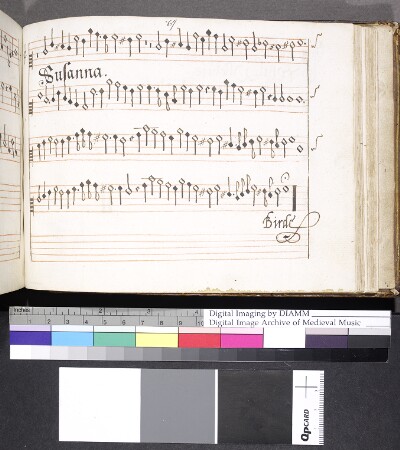 Susanna.
Birde
inches
1 2 3 4
1 2 3 4 5 6 7 8 9 10
Digital Imaging by DIAMM
Digital Image Archive of Medieval Music
QPCARD